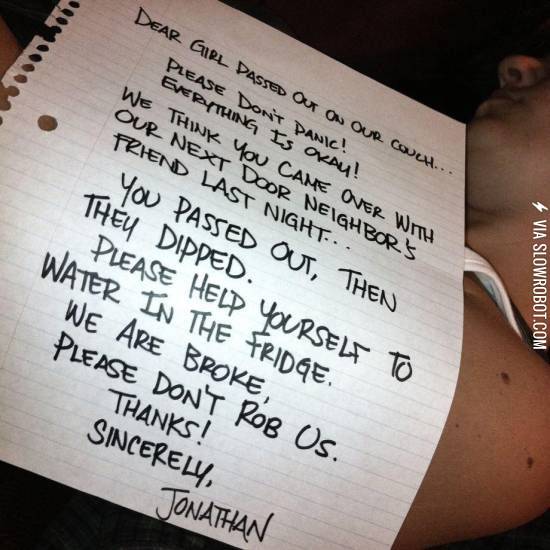 DEAR GIRL PASSED OUT ON OUR COUCH...
PLEASE DON'T PANIC!
EVERYTHING IS OKAY!
WE THINK YOU CAME OVER WITH
OUR NEXT DOOR NEIGHBOR'S
FRIEND LAST NIGHT...
YOU PASSED OUT, THEN
THEY DIPPED.
PLEASE HELP YOURSELF TO
WATER IN THE FRIDGE.
WE ARE BROKE,
PLEASE DON'T ROB US.
THANKS!
SINCERELY,
JONATHAN
VIA SLOWROBOT.COM